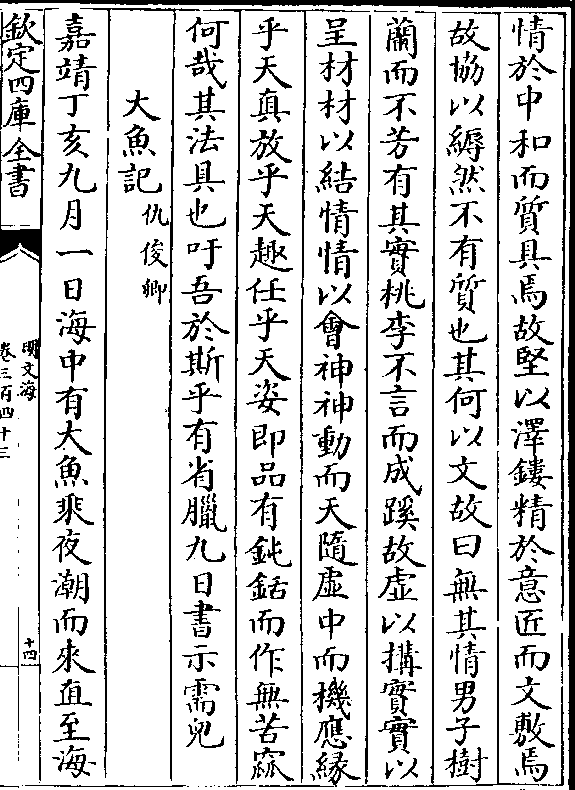 情於中和而質具焉故堅以澤鏤精於意匠而文敷焉
故協以縟然不有質也其何以文故曰無其情男子樹
蘭而不芳有其實桃李不言而成蹊故虛以搆實實以
呈材材以結情情以會神神動而天隨虛中而機應緣
乎天真放乎天趣任乎天姿即品有鈍銛而作無苦窳
何哉其法具也吁吾於斯乎有省臘九日書示需兒
大魚記仇俊卿
嘉靖丁亥九月一日海中有大魚乘夜潮而來直至海
欽定四庫全書
明文海
卷三百四十三
十四